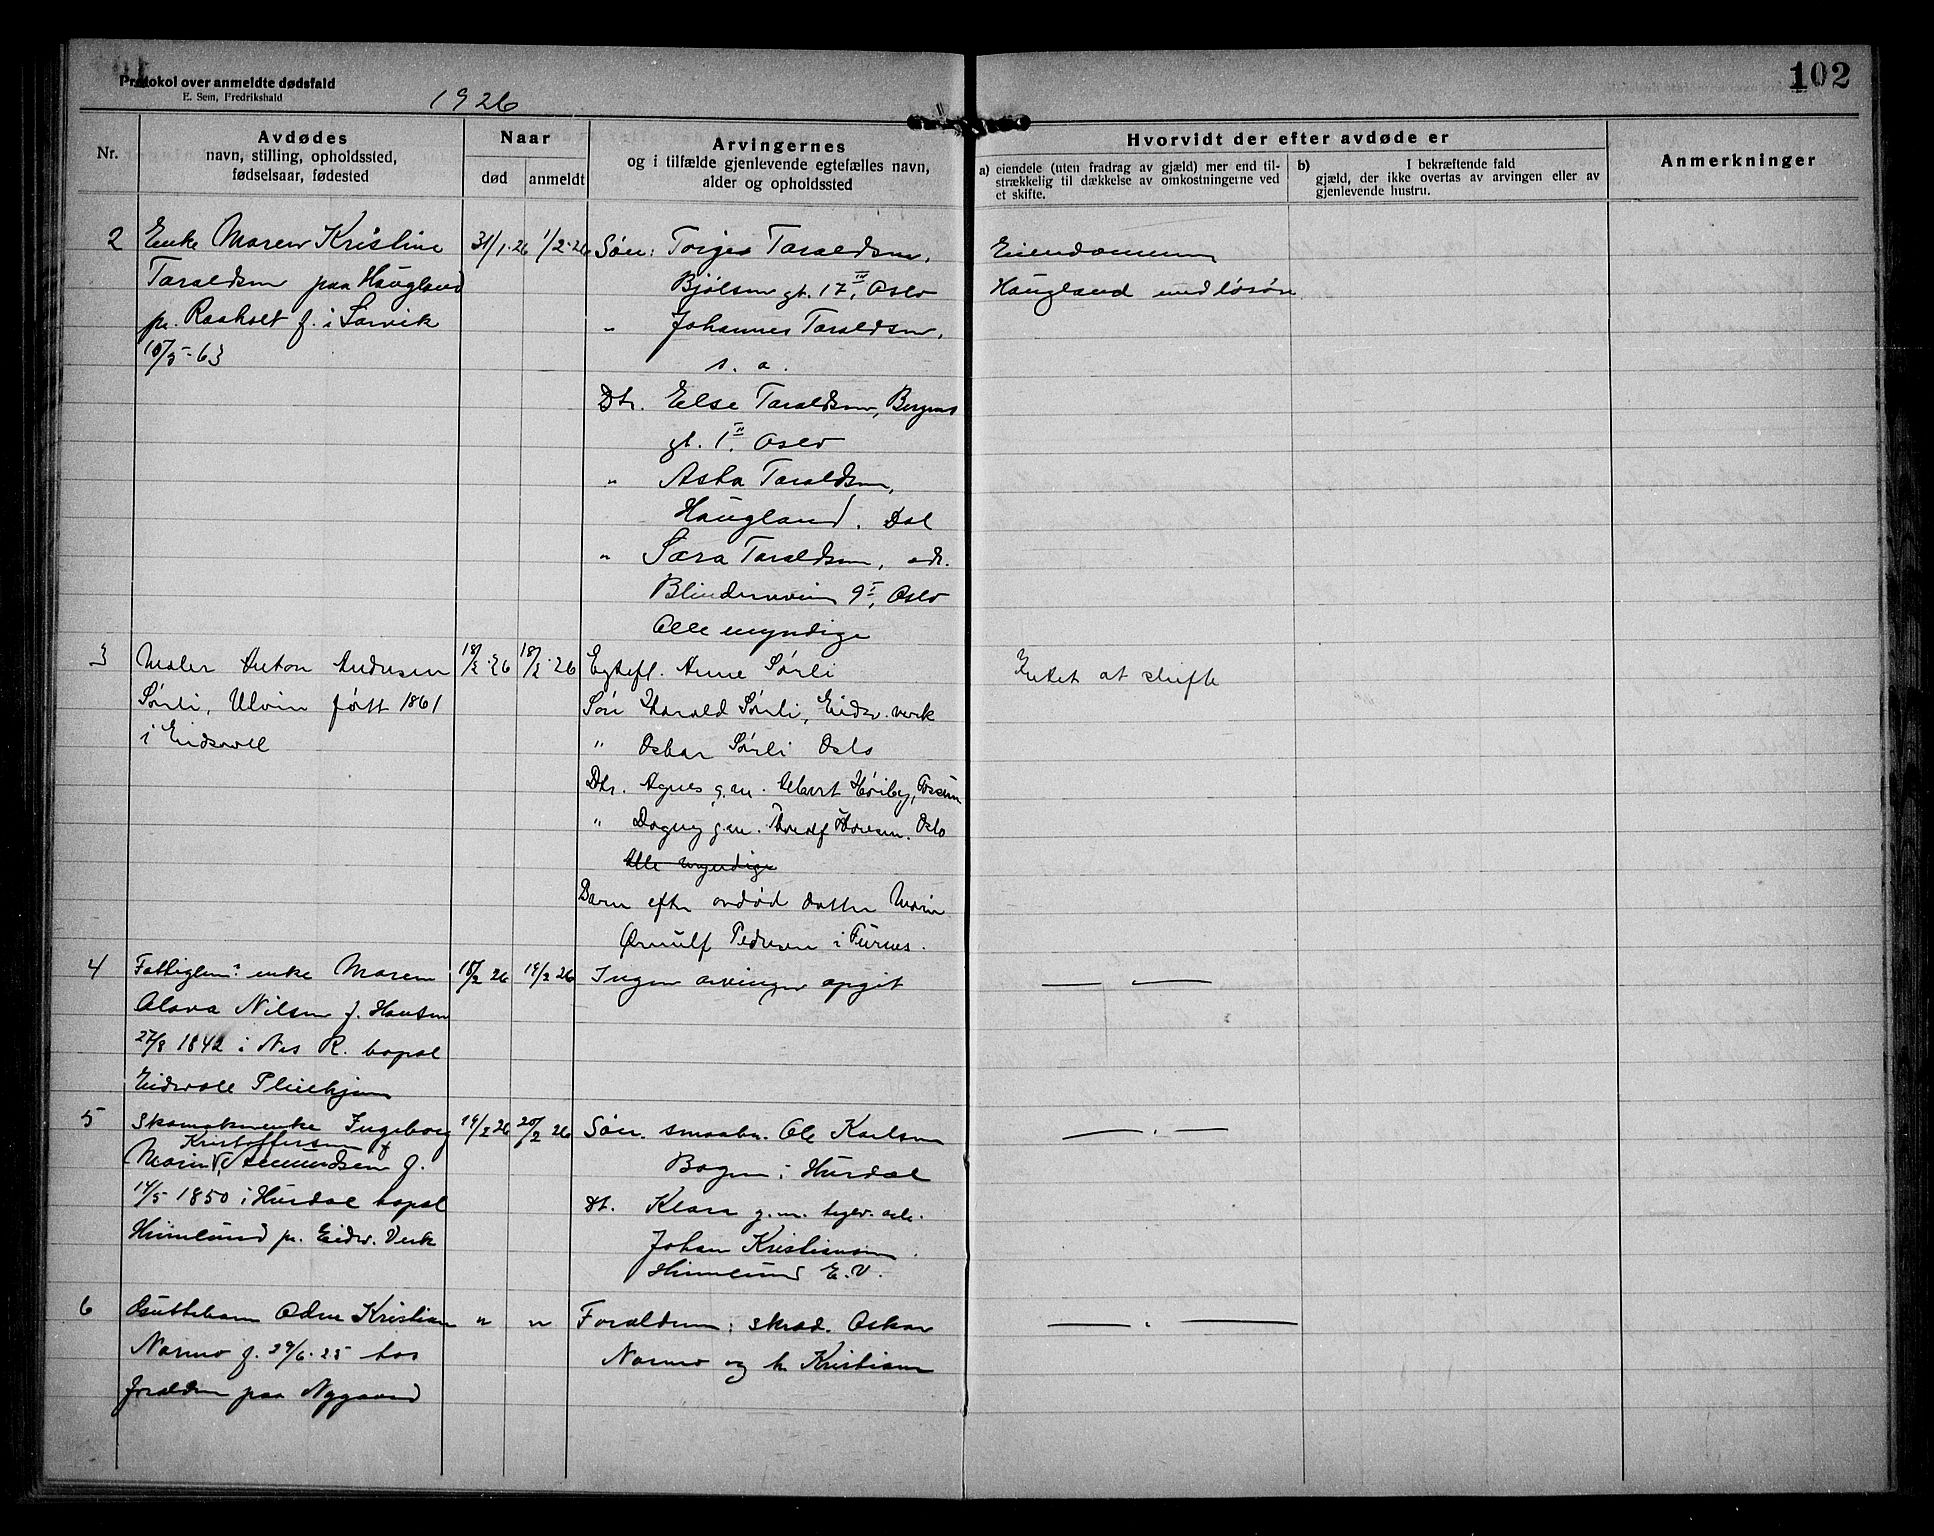 Protokol over anmeldte dødsfald
E. Sem, Fredrikshald
1926
102
Nr.
Avdødes
navn, stilling, opholdssted,
fødselsaar, fødested
Naar
død
anmeldt
Arvingernes
og i tilfælde gjenlevende egtefælles navn,
alder og opholdssted
Hvorvidt der efter avdøde er
a) eiendele (uten fradrag av gjæld) mer end til-
strækkelig til dækkelse av omkostningerne ved
et skifte.
b) I bekræftende fald
gjæld, der ikke overtas av arvingen eller av
gjenlevende hustru.
Anmerkninger
2
Enke Maren Kristine
Taraldsen paa Haugland
pr. Raaholt f. i
63
31/1-26
1/2-26
Søn: Torger Taraldsen,
Bjølsen gt. 17 IV, Oslo
" Johannes Taraldsen,
s. a.
Dtr. Else Taraldsen, Bergens
gt. 1 II Oslo
" Asta Taraldsen,
Haugland. Dal
" Sara Taraldsen, adr.
Blindernveien 9 I, Oslo
Alle myndige
Eiendommen
Haugland med løsøre
3
Maler Anton Andersen
Sørli, Ulvin født 1861
i Eidsvoll
18/2-26
18/2-26
Egtef. Anne Sørli
Søn Harald Sørli, Eidsv. verk
" Oskar Sørli Oslo
Dtr. Agnes g.m. Albert Høiby,
" Dagny g.m. Thoralf Hansen. Oslo
Alle myndige
Barn efter avdød datter Marie
Ørnulf Pedersen i Furnes.
Intet at skifte
4
Fattiglem: enke Maren
Olava Nilsen f. Hansen
27/8 1842 i Nes R. bopæl
Eidsvoll Pleiehjem
18/2 26
19/2 26
Ingen arvinger opgit
— —
5
Skomakerenke Ingeborg
Kristoffersen
Marie Amundsen f.
14/5 1850 i Hurdal bopæl
Himlund pr. Eidsv. Verk
19/2 26
20/2 26
Søn. smaabr. Ole Karlsen
Bogen i Hurdal
Dt. Klara g.m.
Johan Kristiansen
Himlund E.V.
— " —
6
Guttebarn Odin Kristian
Narmo f. 29/6-25 hos
forældrene paa Nygaard
"
"
Forældrene: skræd. Oskar
Narmo og h. Kristiane
— " —